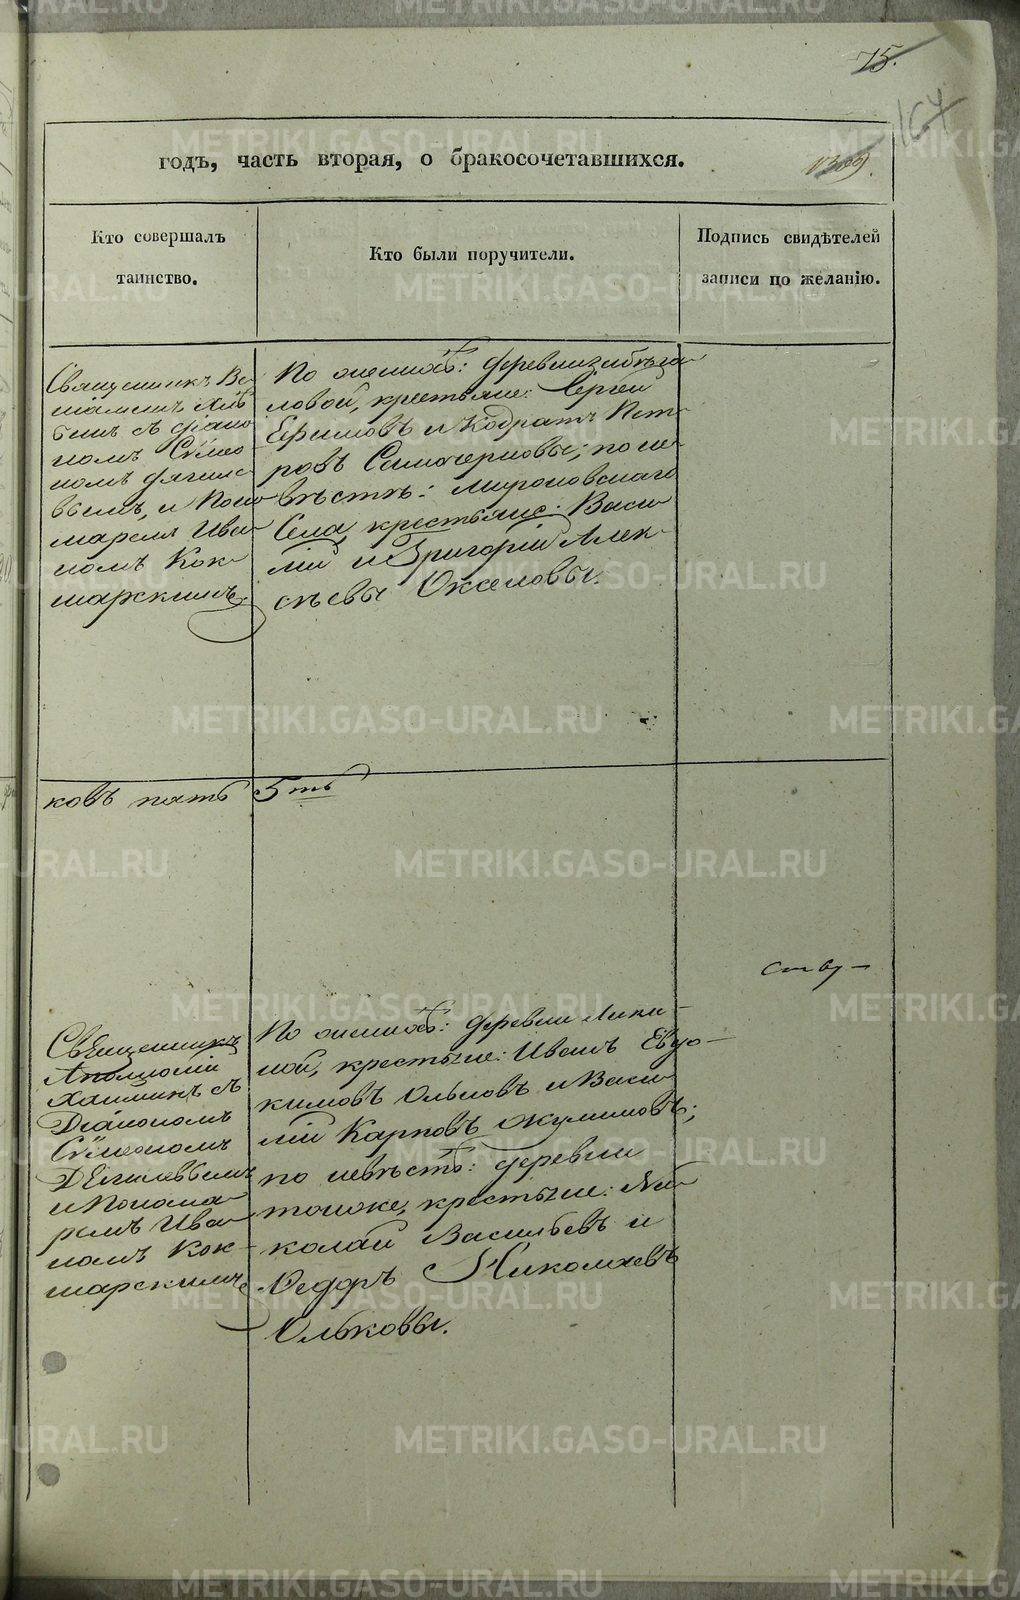 75.
164
1309.
годъ, часть вторая, о бракосочетавшихся.
Кто совершалъ
таинство.
Кто были поручители.
Подпись свидѣтелей
записи по желанію.
Священникъ Ве
ніаминъ
съ діако
номъ Сѵмео
номъ Дягиле
вымъ, и Поно
маремъ Ива
номъ Кок
шарскимъ.
По женихѣ: деревни
ловой, крестьяне: Сергей
Ефимовъ и Кодратъ Пет
ровъ Самочерновы; по не
вѣстѣ: Мироновскаго
Села, крестьяне: Васи
лій и Григорій Алек
сѣевы Окс
ковъ пять 5ть
ству
Священникъ
Аполлоній
Хаминъ съ
Діакономъ
Сѵмеономъ
Дягилевымъ
и Понома
ремъ Ива
номъ Кок
шарскимъ
По женихѣ: деревни Луки
ной, крестьяне: Иванъ Евдо
кимовъ Ольковъ и Васи
лій Карповъ Жулимовъ;
по невѣстѣ: деревни
тоже, крестьяне: Ни
колай Васильевъ и
Ѳедоръ Николаевъ
Ольковы.
METRIKI.GASO-URAL.RU